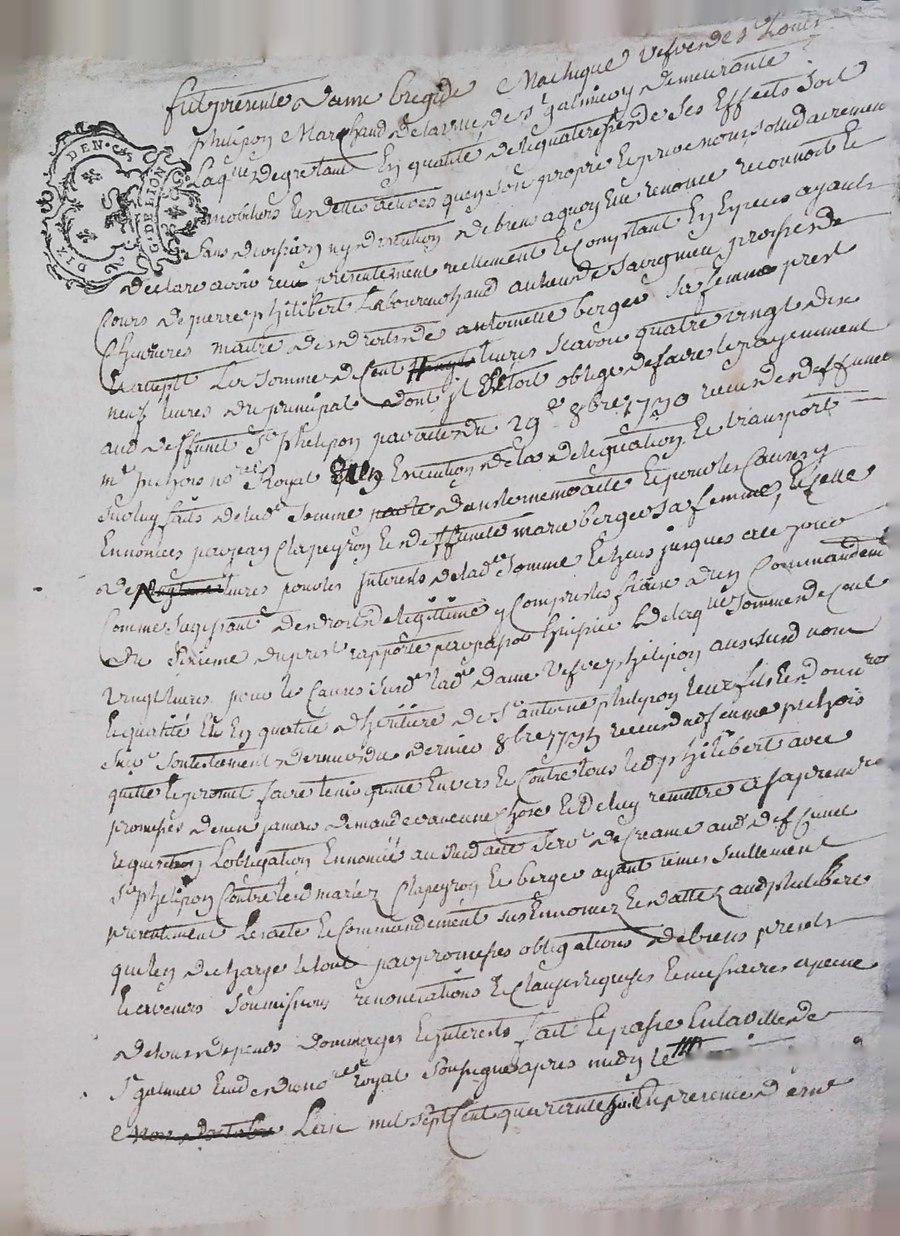 DIX DEN. G. DE LION
fut presente dame brigide Mathique vefve de Sr Louis
phelipon Marchand de la ville de St galmier y demeurante
laqlle degretant En qualité de lequateresse de ses Effects soit
mobiliers Et dettes actives quen son propre Et prive nom solidairement
sans division ny discution de biens aquoy Elle renonce reconnoit Et
declare avoir receu presentement reellement Et Comptant En Especes ayants
Cours de pierre philibert laboureur au lieu de Savignieu proisse de
Chevrieres maitre des droits de antoinette berger sa femme prest
Et acceptt La somme de Cent livres scavoir quatre vingt dix
neuf livres du principal dont jl Estoit oblige de faire le payement
aud deffunt Sr phelipon par acte du 29e 8bre 1740 receu de deffunct
me prichois nore Royal En Execution de la delegation Et transport
sur luy faits de lade somme dans le meme acte Et pour les Causes y
Ennoncees par jean Clapeyron Et deffunte marie berger sa femme, Et celle
de livres pour les Interests de lade somme Et Ceux jusques a ce jour
Comme sagissant de droits de legittime y Compris les fraix dun Commandemt
du sixieme du prest rapporte par pajot huissier de laqlle somme de Cent
vingt livres pour les Causes susd lade dame vefve phelipon aud susd nom
Et qualité Et En qualité dheritiere de Sr antoine phelipon leur fils Et donnre
suivt son testament du dernier 8bre receu dud feu me prichois
quitte Et promet faire tenir quitte Envers Et Contre tous led philibert avec
promesses de nen jamais demander aucune Chose Et de luy remettre a sa premiere
requisition lobligation Ennoncée au susd acte de Creance aud deffunct
Sr phelipon Contre led mariez Clapeyron Et berger ayant remis seullement
presentement Lacte Et Commandement sus Ennoncez Et dattez aud philibert
qui len decharge Et tout par promesses obligations de biens presents
Et avenirs soumissions renonciations Et Clauses requises Et necessaires a peine
de tous depends dommages Et interests fait Et passé En la ville de
St galmier Etude du nore royal soussigné apres midy le
Lan mil sept Cent quarante En presence d'eme